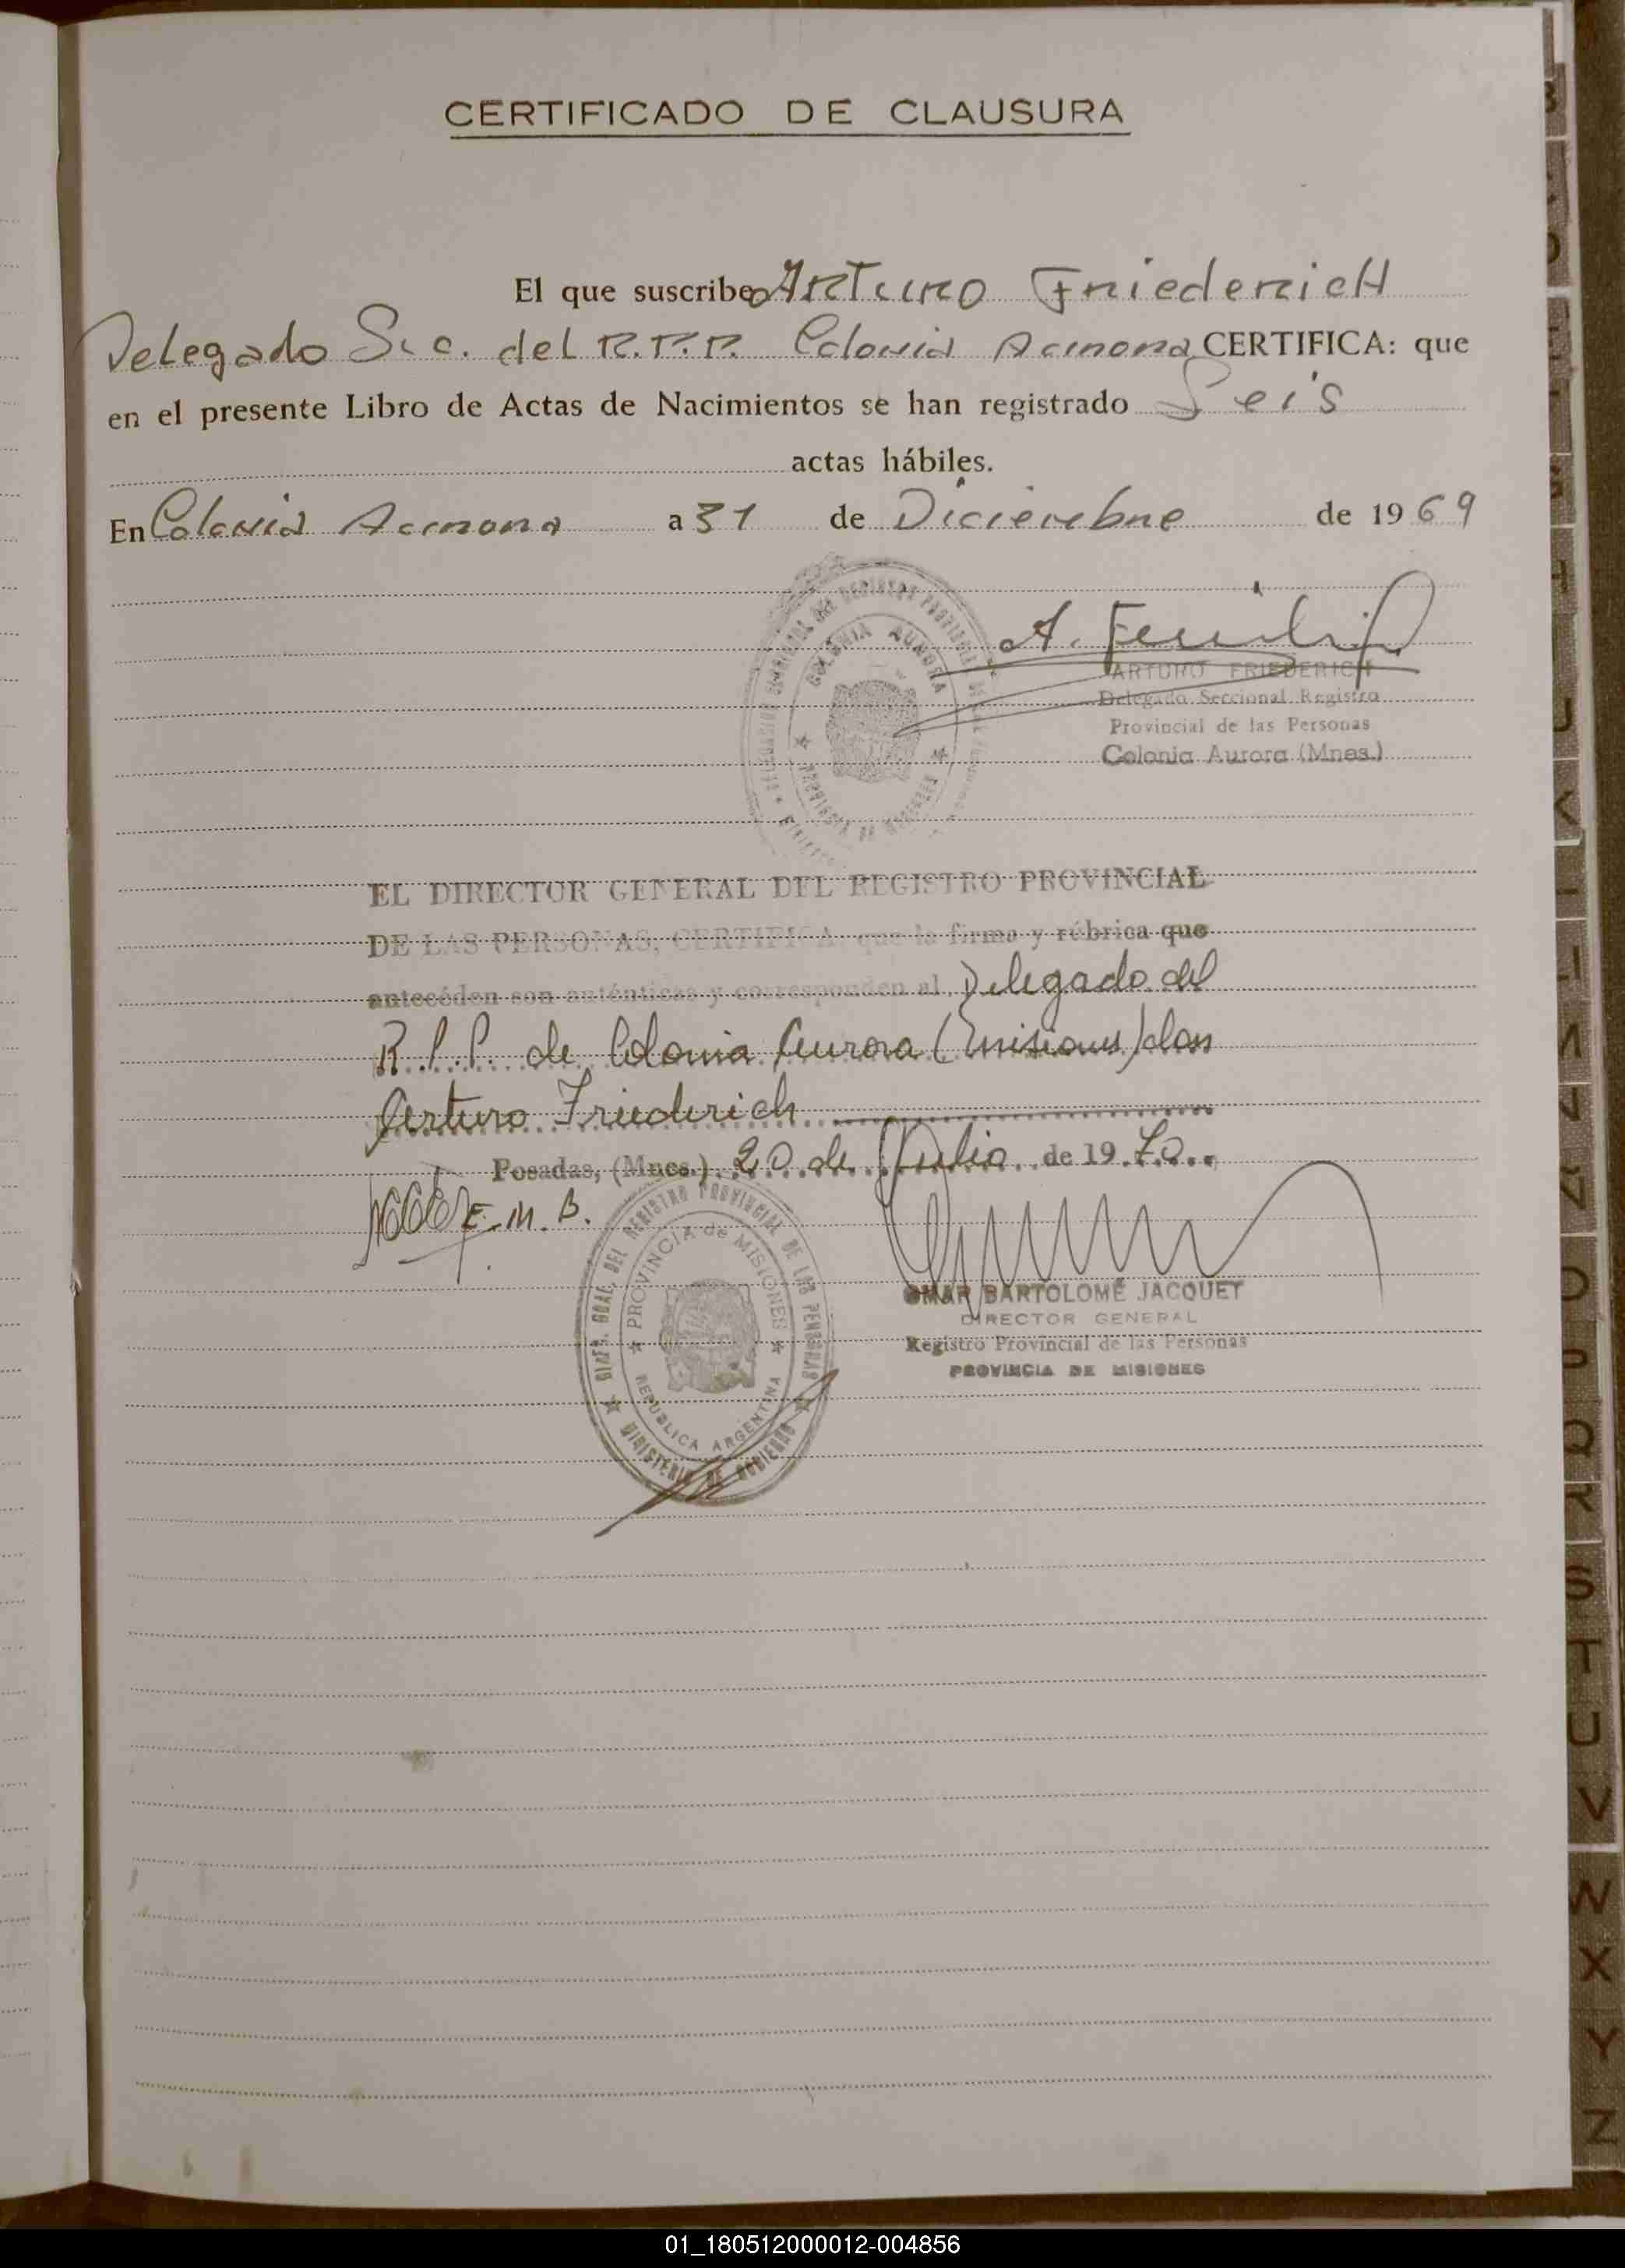 CERTIFICADO DE CLAUSURA
El que suscribe Arturo Friederich
Delegado Sec. del R.P.P. Colonia Aurora CERTIFICA: que
en el presente Libro de Actas de Nacimientos se han registrado Seis
actas hábiles.
En Colonia Aurora a 31 de Diciembre de 1969
COLONIA AURORA
PROVINCIA DE MISIONES
A. Friederich
ARTURO FRIEDERICH
Delegado Seccional Registro
Provincial de las Personas
Colonia Aurora (Mnes.)
EL DIRECTOR GENERAL DEL REGISTRO PROVINCIAL
DE LAS PERSONAS, CERTIFICA que la firma y rúbrica que
antecéden son auténticas y corresponden al Delegado del
R.P.P. de Colonia Aurora (Misiones) don
Arturo Friederich
Posadas, (Mnes.) 20 de Julio de 1970
E.M.B.
DIREC. GRAL. DEL REGISTRO PROVINCIAL DE LAS PERSONAS
PROVINCIA de MISIONES
REPUBLICA ARGENTINA
MINISTERIO DE GOBIERNO
OMAR BARTOLOMÉ JACQUET
DIRECTOR GENERAL
Registro Provincial de las Personas
PROVINCIA DE MISIONES
S
T
U
V
W
X
Y
Z
01_180512000012-004856